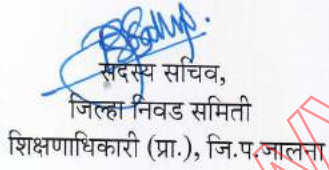 सदस्य सचिव,
जिल्हा निवड समिती
शिक्षणाधिकारी (प्रा.), जि.प.जालना